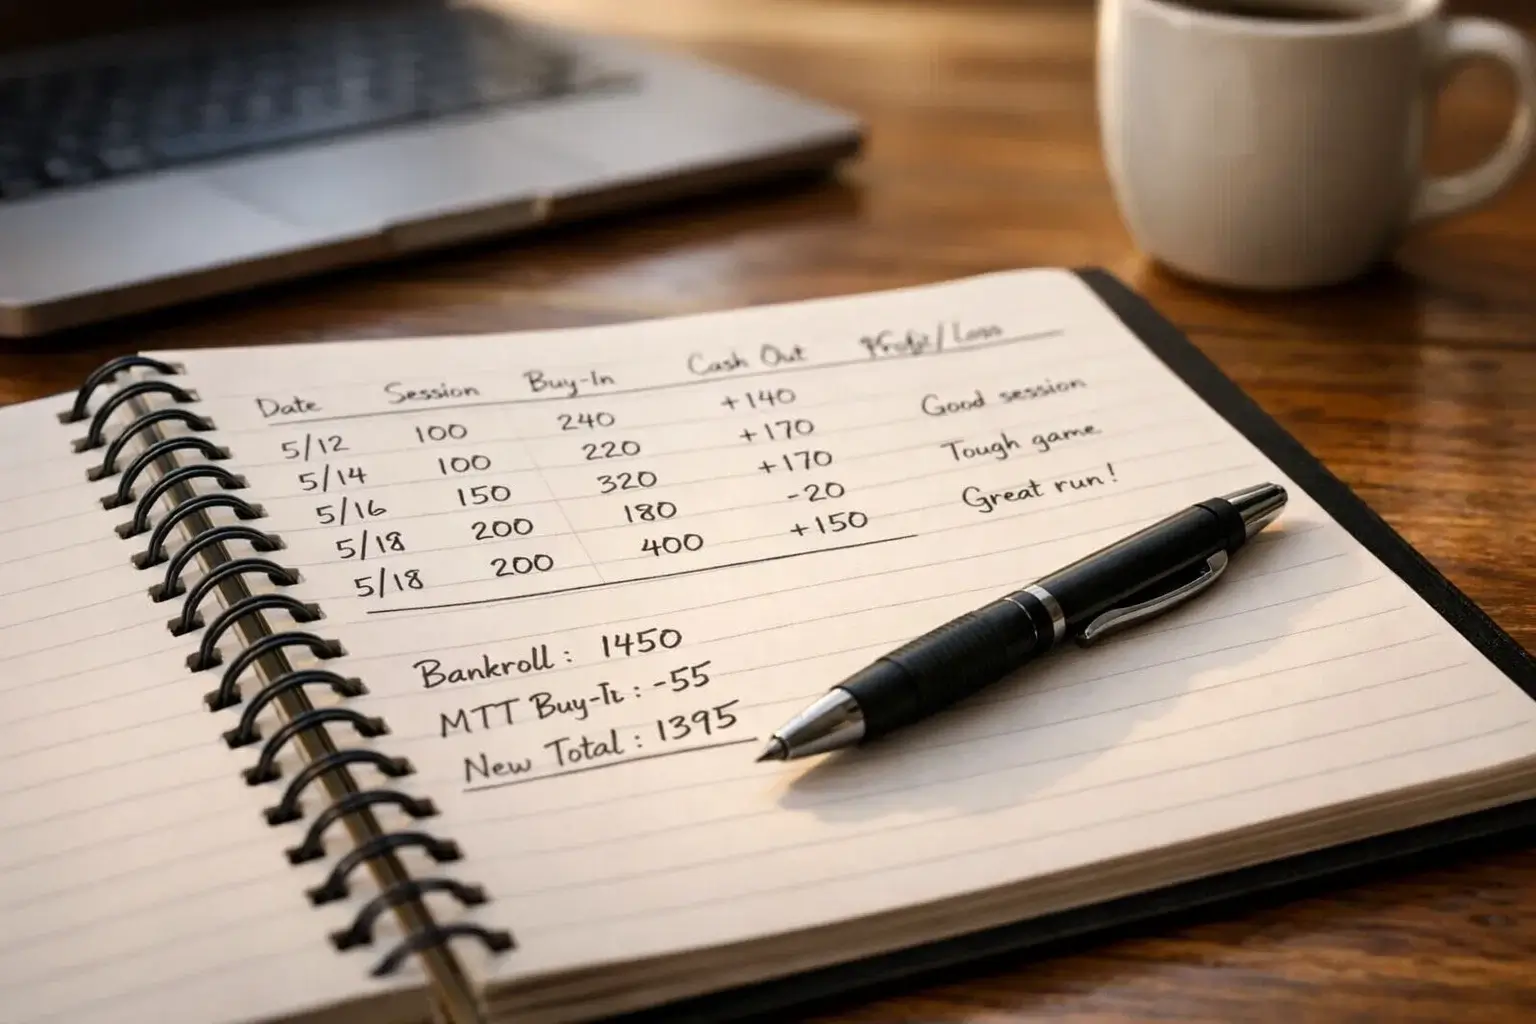 Date Session Buy-In Cash Out Profit/Loss
5/12 100 240 +140 Good session
5/14 100 220 +170 Tough game
5/16 150 320 +170 Great run!
5/18 200 180 -20
5/18 200 400 +150
Bankroll: 1450
MTT Buy-It: -55
New Total: 1395